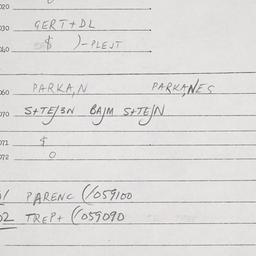 020
030 GERT+DL
040 $ )-PLEJT
060 PARKA,N PARKANES
070 S+TE/3N BAJM S+TE/N
071 $
072 0
01 PARENC (/059100
02 TREP+ (059090